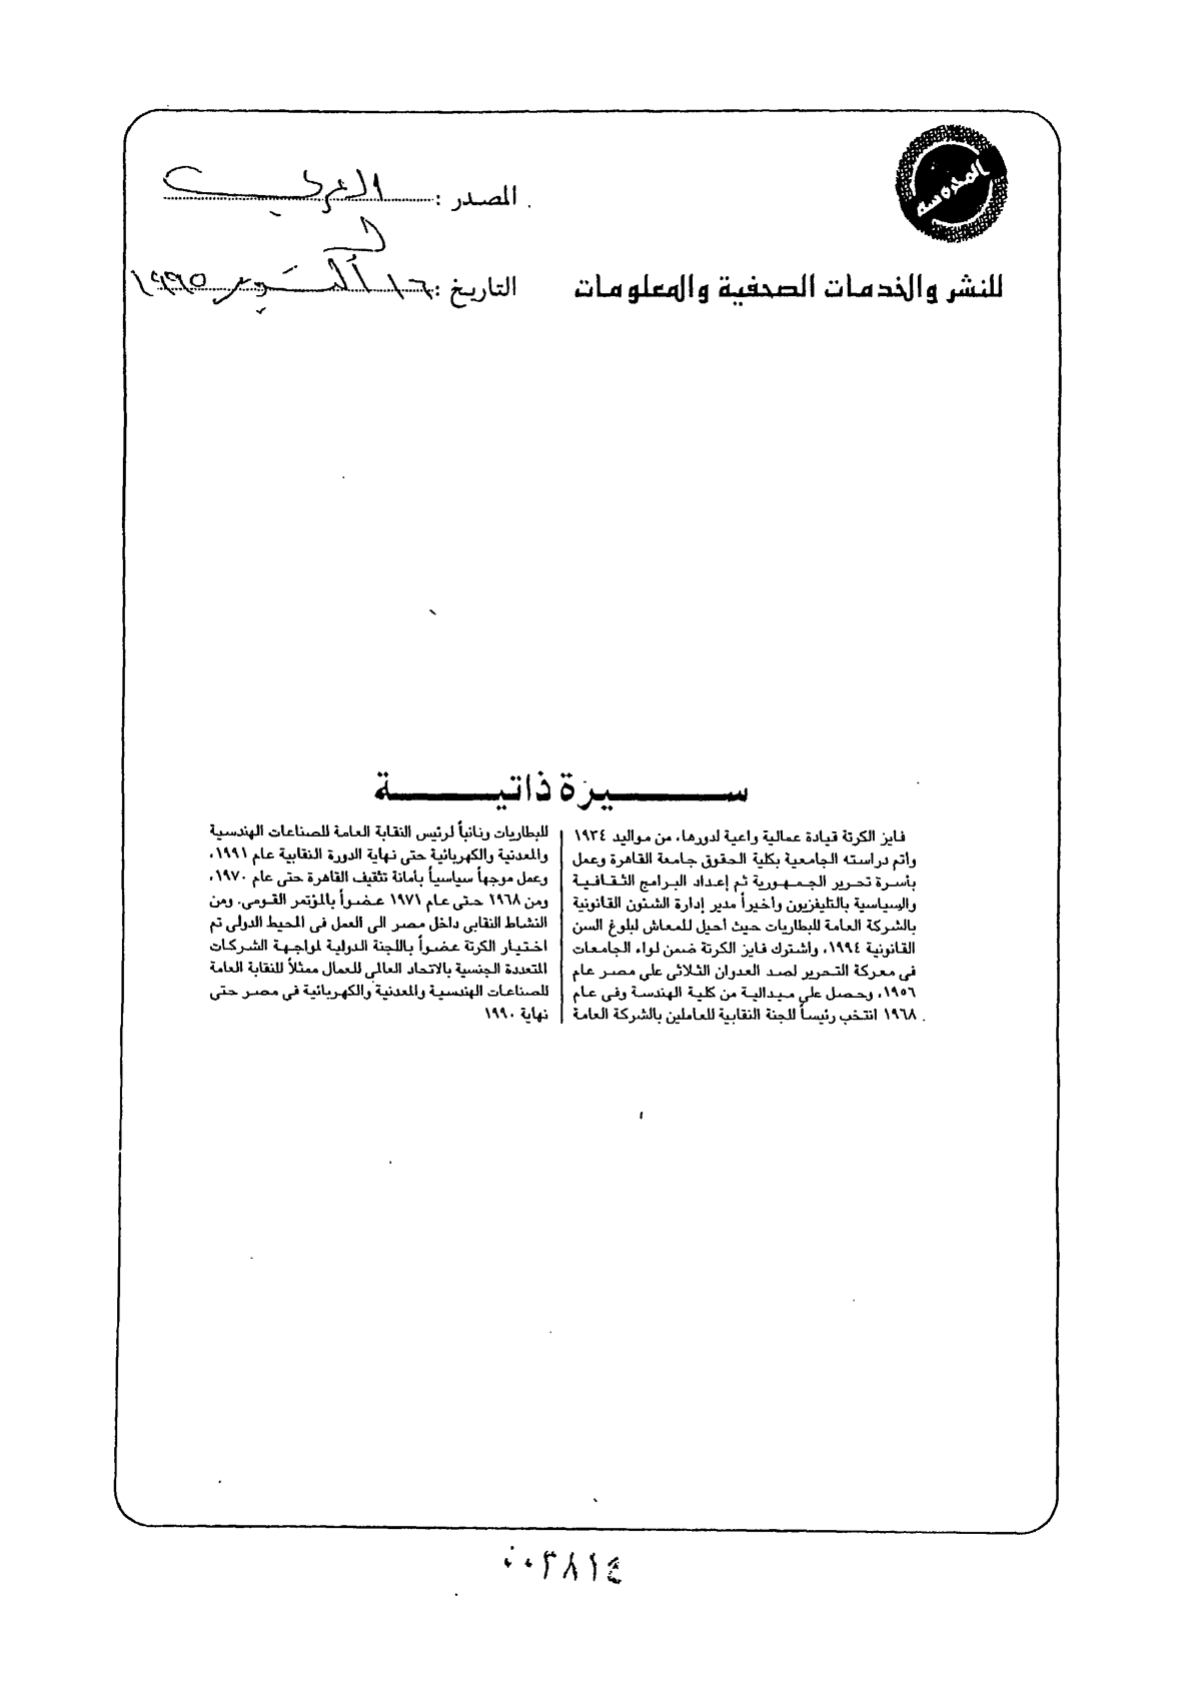 المحروسة
المصدر : العربى
للنشر والخدمات الصحفية والمعلومات
التاريخ : ١٦ أكتوبر ١٩٩٥
سيرة ذاتية
فايز الكرتة قيادة عمالية واعية لدورها، من مواليد ١٩٣٤
واتم دراسته الجامعية بكلية الحقوق جامعة القاهرة وعمل
بأسرة تحرير الجمهورية ثم إعداد البرامج الثقافية
والسياسية بالتليفزيون واخيراً مدير إدارة الشئون القانونية
بالشركة العامة للبطاريات حيث أحيل للمعاش لبلوغ السن
القانونية ١٩٩٤، واشترك فايز الكرتة ضمن لواء الجامعات
فى معركة التحرير لصد العدوان الثلاثى على مصر عام
١٩٥٦، وحصل على ميدالية من كلية الهندسة وفى عام
١٩٦٨ انتخب رئيساً للجنة النقابية للعاملين بالشركة العامة
للبطاريات ونائباً لرئيس النقابة العامة للصناعات الهندسية
والمعدنية والكهربائية حتى نهاية الدورة النقابية عام ١٩٩١،
وعمل موجهاً سياسياً بأمانة تثقيف القاهرة حتى عام ١٩٧٠،
ومن ١٩٦٨ حتى عام ١٩٧١ عضواً بالمؤتمر القومى. ومن
النشاط النقابى داخل مصر الى العمل فى المحيط الدولى تم
اختيار الكرتة عضواً باللجنة الدولية لمواجهة الشركات
المتعددة الجنسية بالاتحاد العالمى للعمال ممثلاً للنقابة العامة
للصناعات الهندسية والمعدنية والكهربائية فى مصر حتى
نهاية ١٩٩٠
٠٠٣٨١٤